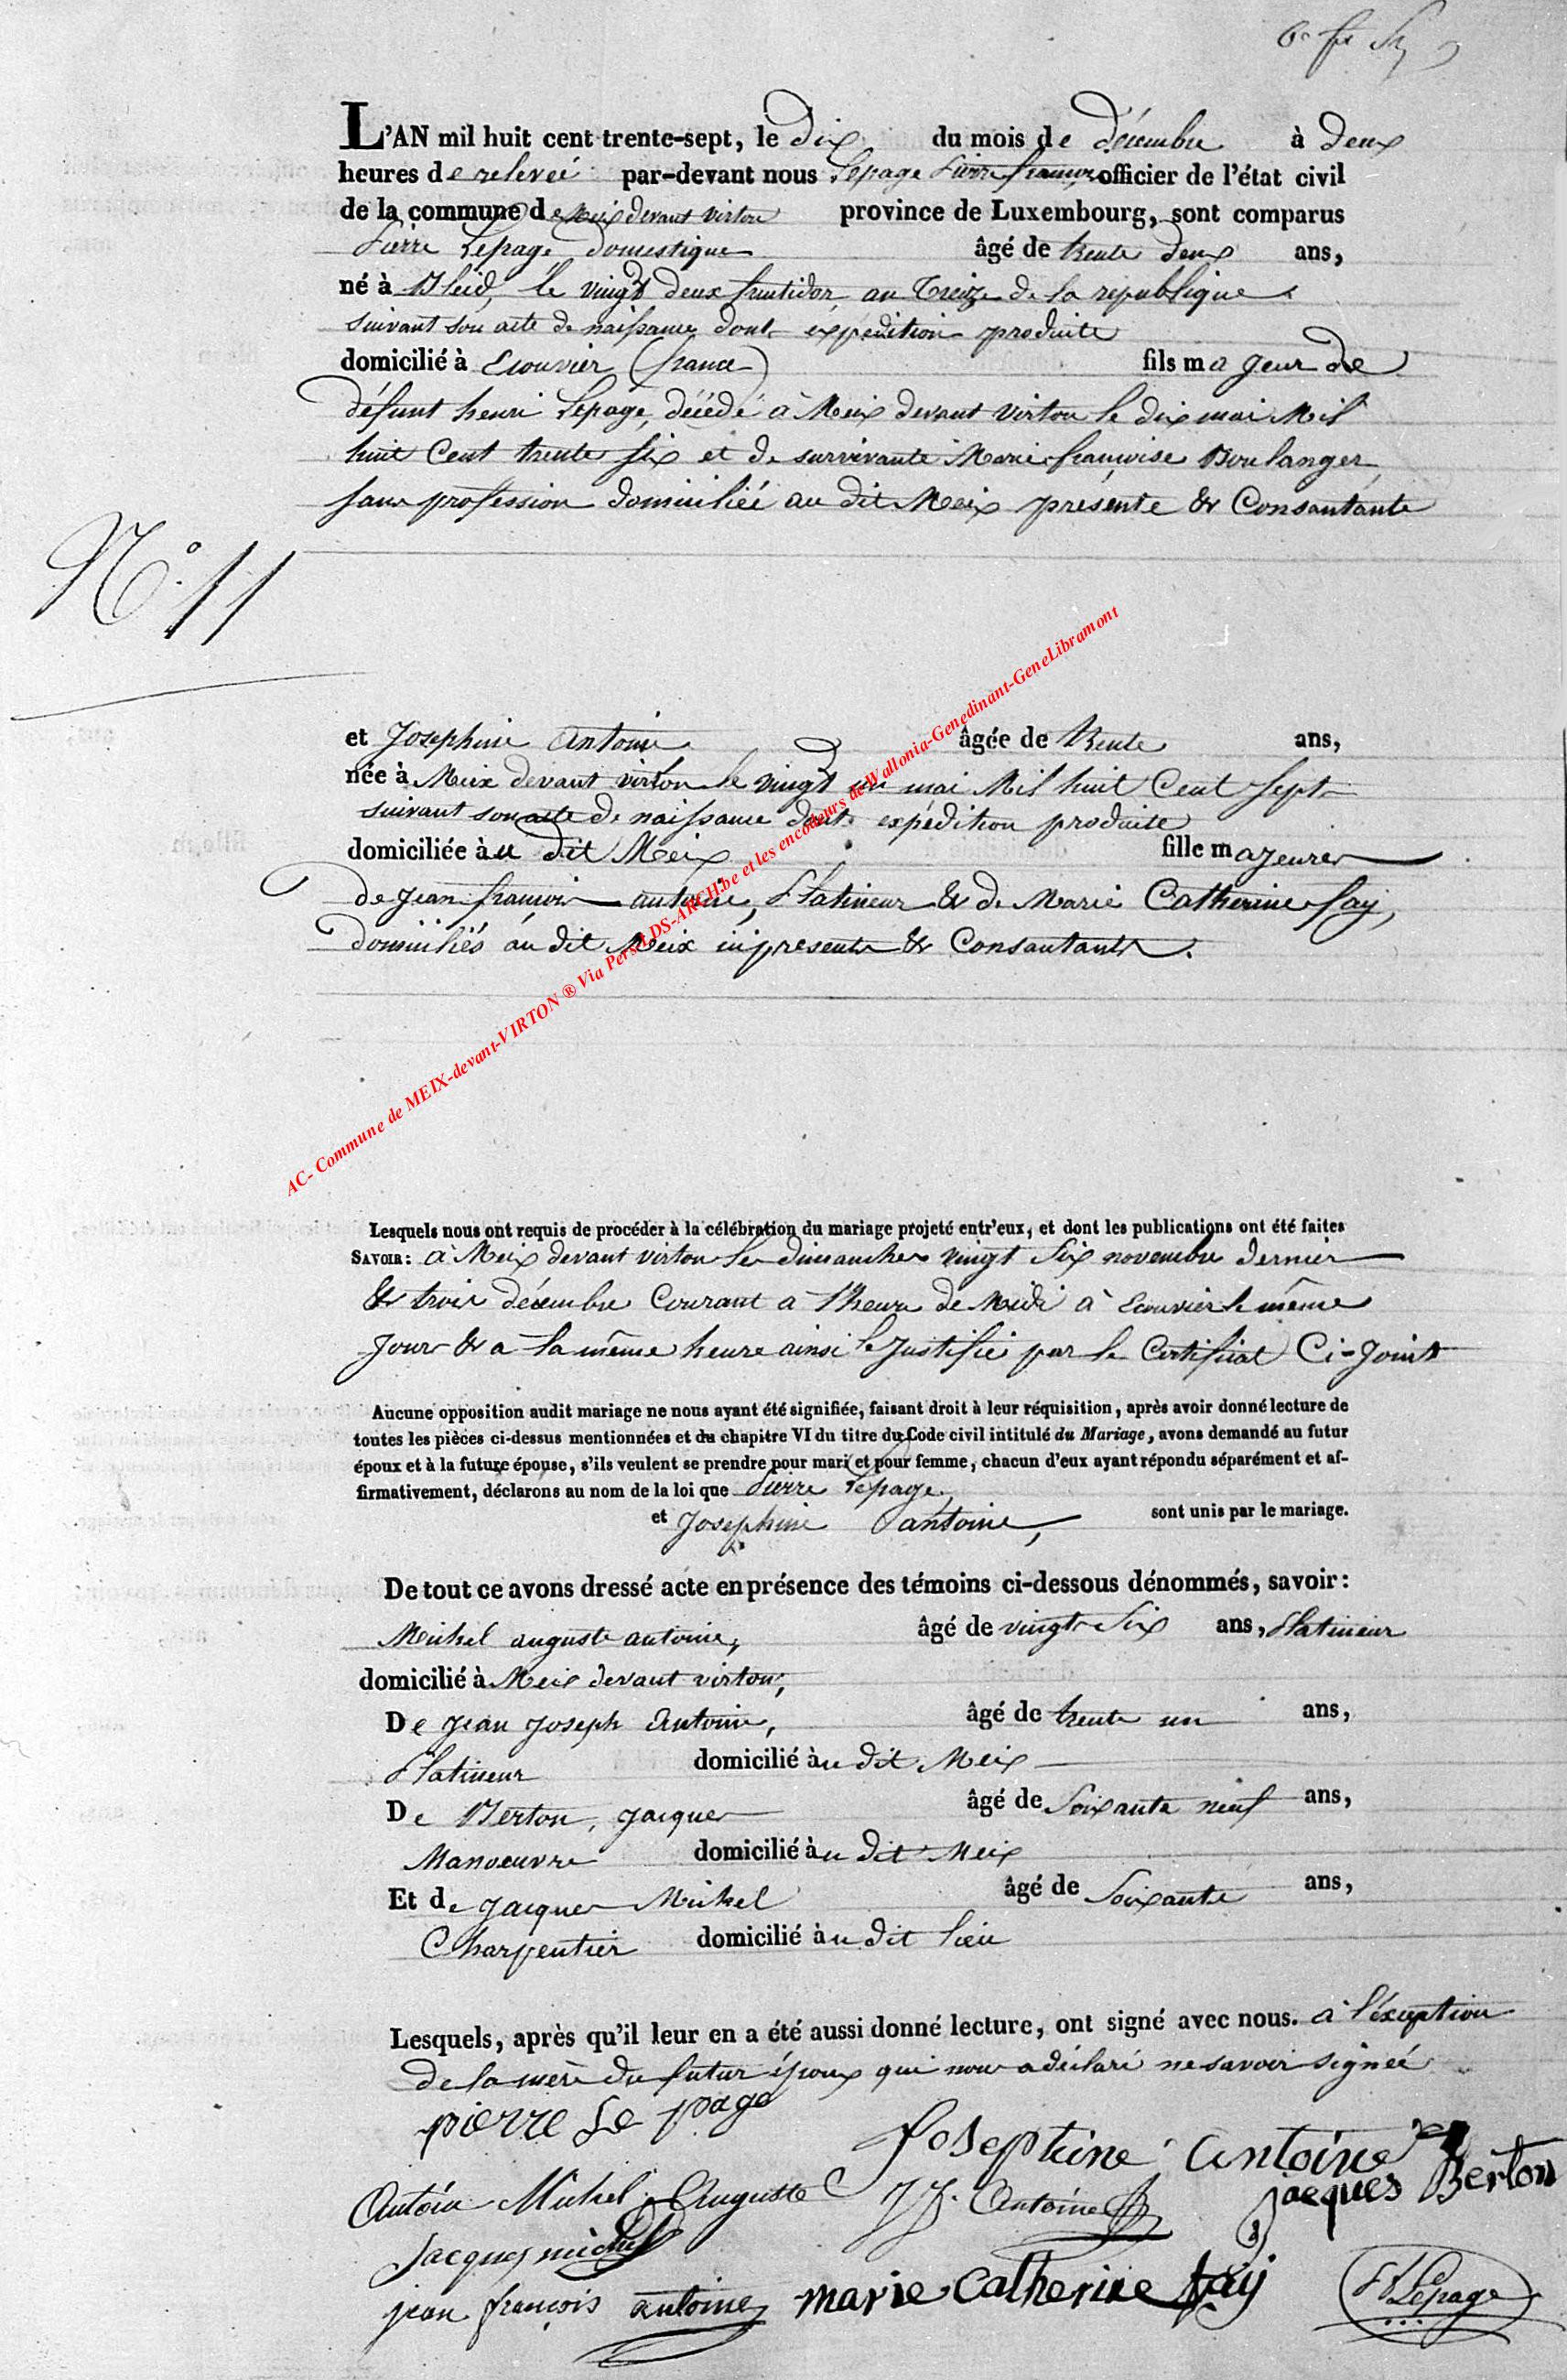 L'AN mil huit cent trente-sept, le dix du mois de décembre à deux
heures de relevée par-devant nous Lepage Pierre françois officier de l'état civil
de la commune de Meix devant virton province de Luxembourg, sont comparus
Pierre Lepage, domestique âgé de trente deux ans,
né à Bleid, le vingt deux fructidor an treize de la republique
suivant son acte de naissance dont expédition produite
domicilié à Ecouvier (france) fils majeur de
défunt henri Lepage, décédé à Meix devant virton le dix mai Mil
huit Cent trente six et de survivante Marie françoise Boulanger
sans profession domiciliée au dit Meix présente & Consantante
N° 11
et Josephine Antoine âgée de trente ans,
née à Meix devant virton le vingt un mai Mil huit Cent Sept
suivant son acte de naissance dont expédition produite
domiciliée au dit Meix fille majeure
de Jean françois antoine, Platineur & de Marie Catherine fay,
domiciliés au dit Meix ici presents & Consantants.
AC- Commune de MEIX-devant-VIRTON ® Via Pers LDS-ARCH.be et les encodeurs de Wallonia-Genedinant-GeneLibramont
Lesquels nous ont requis de procéder à la célébration du mariage projeté entr'eux, et dont les publications ont été faites
SAVOIR: à Meix devant virton les dimanches vingt Six novembre dernier
& trois décembre Courant à l'heure de Midi à Ecouvier le même
Jour & a la même heure ainsi le Justifie par le Certificat Ci-Joint
Aucune opposition audit mariage ne nous ayant été signifiée, faisant droit à leur réquisition, après avoir donné lecture de
toutes les pièces ci-dessus mentionnées et du chapitre VI du titre du Code civil intitulé du Mariage, avons demandé au futur
époux et à la future épouse, s'ils veulent se prendre pour mari et pour femme, chacun d'eux ayant répondu séparément et af-
firmativement, déclarons au nom de la loi que Pierre Lepage,
et Josephine antoine, sont unis par le mariage.
De tout ce avons dressé acte en présence des témoins ci-dessous dénommés, savoir:
Michel auguste antoine, âgé de vingt Six ans, Platineur
domicilié à Meix devant virton,
De Jean Joseph Antoine, âgé de trente un ans,
Platineur domicilié au dit Meix
De Berton, Jacques âgé de Soixante neuf ans,
Manoeuvre domicilié au dit Meix
Et de Jacques Michel âgé de Soixante ans,
Charpentier domicilié au dit lieu
Lesquels, après qu'il leur en a été aussi donné lecture, ont signé avec nous. à l'éxception
de la mère du futur époux qui nous a déclaré ne savoir signée
pierre Le page
Joseptine Antoine
jacques Berton
Antoine Michel Auguste JJ. Antoine
Jacques michel
jean françois antoine marie catherine fay PF Lepage